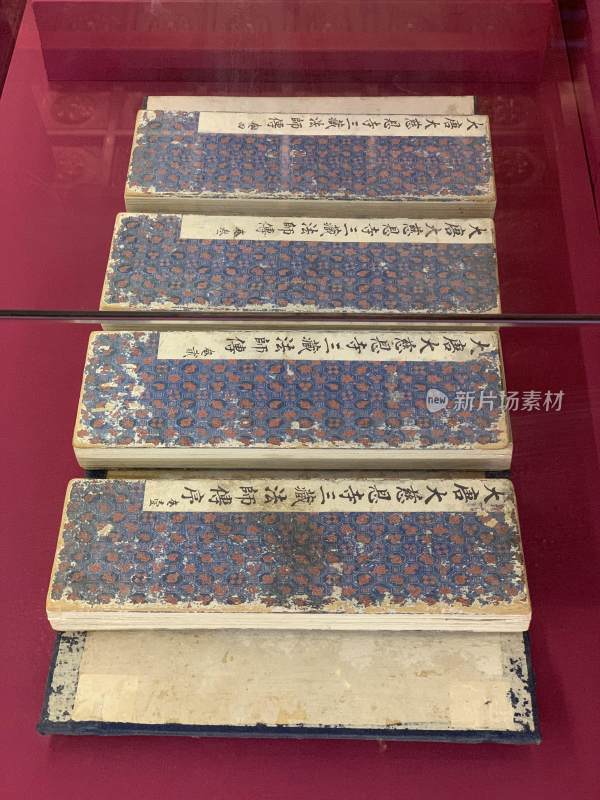 大唐大慈恩寺三藏法師傳 卷四
大唐大慈恩寺三藏法師傳 卷叁
大唐大慈恩寺三藏法師傳 卷貳
大唐大慈恩寺三藏法師傳序 卷壹
new 新片场素材